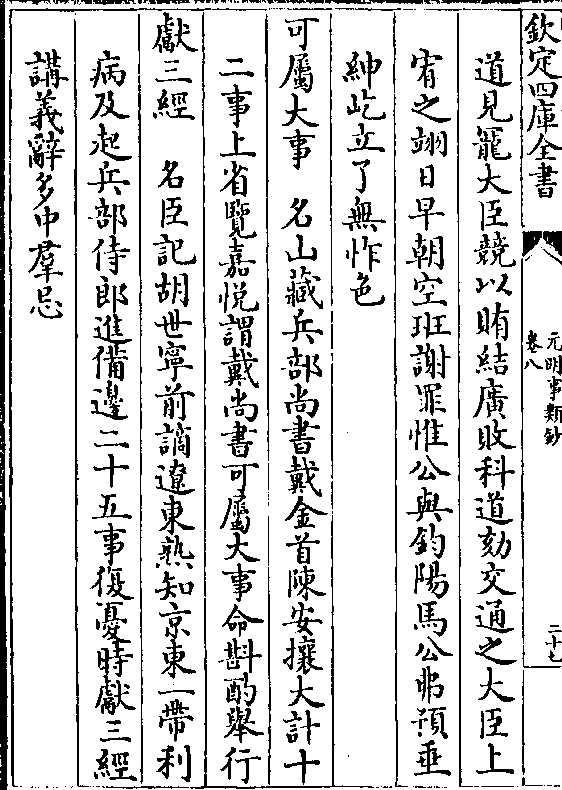 欽定四庫全書
元明事類鈔
卷八
二十七
道見寵大臣競以賄結廣敗科道劾交通之大臣上
宥之翊日早朝空班謝罪惟公與鈞陽馬公弗預垂
紳屹立了無怍色
可屬大事　名山藏兵部尚書戴金首陳安攘大計十
二事上省覽嘉悅謂戴尚書可屬大事命斟酌舉行
獻三經　名臣記胡世寧前謫遼東熟知京東一帶利
病及起兵部侍郎進備邊二十五事復憂時獻三經
講義辭多中羣忌